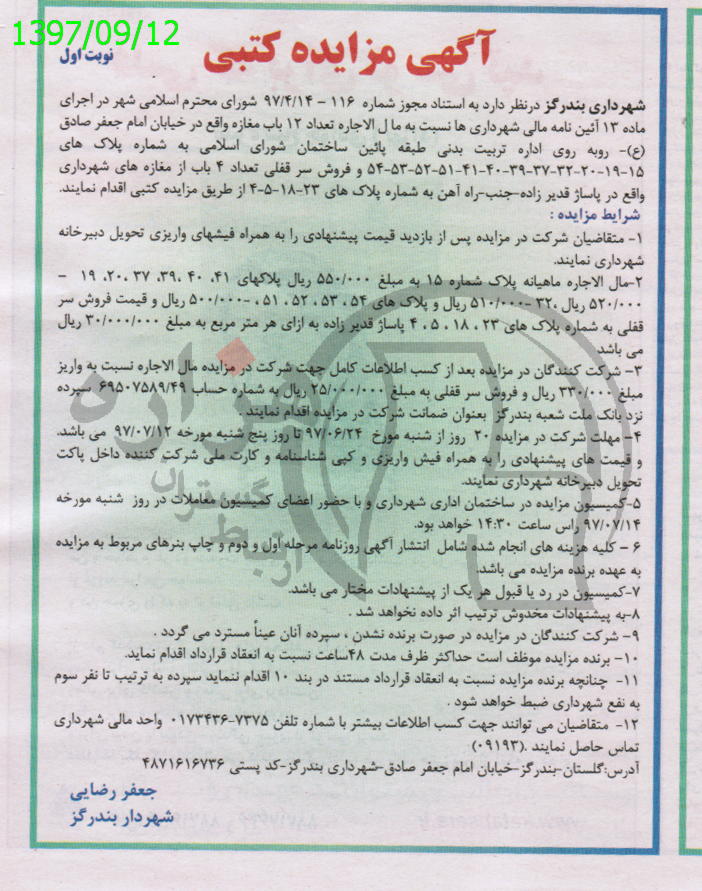 1397/09/12
آگهی مزایده کتبی
نوبت اول
شهرداری بندرگز درنظر دارد به استناد مجوز شماره ۱۱۶ - ۹۷/۴/۱۴ شورای محترم اسلامی شهر در اجرای
ماده ۱۳ آئین نامه مالی شهرداری ها نسبت به ما ل الاجاره تعداد ۱۲ باب مغازه واقع در خیابان امام جعفر صادق
(ع)- روبه روی اداره تربیت بدنی طبقه پائین ساختمان شورای اسلامی به شماره پلاک های
۱۵-۱۹-۲۰-۳۲-۳۷-۳۹-۴۰-۴۱-۵۱-۵۲-۵۳-۵۴ و فروش سر قفلی تعداد ۴ باب از مغازه های شهرداری
واقع در پاساژ قدیر زاده-جنب-راه آهن به شماره پلاک های ۲۳-۱۸-۵-۴ از طریق مزایده کتبی اقدام نمایند.
شرایط مزایده :
۱- متقاضیان شرکت در مزایده پس از بازدید قیمت پیشنهادی را به همراه فیشهای واریزی تحویل دبیرخانه
شهرداری نمایند.
۲-مال الاجاره ماهیانه پلاک شماره ۱۵ به مبلغ ۵۵۰/۰۰۰ ریال پلاکهای ۴۱، ۴۰ ،۳۹، ۳۷ ،۲۰، ۱۹ -
۵۲۰/۰۰۰ ریال ،۳۲ -۵۱۰/۰۰۰ ریال و پلاک های ۵۴ ، ۵۳ ، ۵۲ ، ۵۱ ، -۵۰۰/۰۰۰ ریال و قیمت فروش سر
قفلی به شماره پلاک های ۲۳ ، ۱۸ ، ۵ ، ۴ پاساژ قدیر زاده به ازای هر متر مربع به مبلغ ۳۰/۰۰۰/۰۰۰ ریال
می باشد.
۳- شرکت کنندگان در مزایده بعد از کسب اطلاعات کامل جهت شرکت در مزایده مال الاجاره نسبت به واریز
مبلغ ۳۳۰/۰۰۰ ریال و فروش سر قفلی به مبلغ ۲۵/۰۰۰/۰۰۰ ریال به شماره حساب ۶۹۵۰۷۵۸۹/۴۹ سپرده
نزد بانک ملت شعبه بندرگز بعنوان ضمانت شرکت در مزایده اقدام نمایند .
۴- مهلت شرکت در مزایده ۲۰ روز از شنبه مورخ ۹۷/۰۶/۲۴ تا روز پنج شنبه مورخه ۹۷/۰۷/۱۲ می باشد.
و قیمت های پیشنهادی را به همراه فیش واریزی و کپی شناسنامه و کارت ملی شرکت کننده داخل پاکت
تحویل دبیرخانه شهرداری نمایند.
۵-کمیسیون مزایده در ساختمان اداری شهرداری و با حضور اعضای کمیسیون معاملات در روز شنبه مورخه
۹۷/۰۷/۱۴ راس ساعت ۱۴:۳۰ خواهد بود.
۶ - کلیه هزینه های انجام شده شامل انتشار آگهی روزنامه مرحله اول و دوم و چاپ بنرهای مربوط به مزایده
به عهده برنده مزایده می باشد.
۷-کمیسیون در رد یا قبول هر یک از پیشنهادات مختار می باشد.
۸-به پیشنهادات مخدوش ترتیب اثر داده نخواهد شد .
۹- شرکت کنندگان در مزایده در صورت برنده نشدن ، سپرده آنان عیناً مسترد می گردد .
۱۰- برنده مزایده موظف است حداکثر ظرف مدت ۴۸ساعت نسبت به انعقاد قرارداد اقدام نماید.
۱۱- چنانچه برنده مزایده نسبت به انعقاد قرارداد مستند در بند ۱۰ اقدام ننماید سپرده به ترتیب تا نفر سوم
به نفع شهرداری ضبط خواهد شود .
۱۲- متقاضیان می توانند جهت کسب اطلاعات بیشتر با شماره تلفن ۷۳۷۵-۰۱۷۳۴۳۶ واحد مالی شهرداری
تماس حاصل نمایند .(۰۹۱۹۳)
آدرس:گلستان-بندرگز-خیابان امام جعفر صادق-شهرداری بندرگز-کد پستی ۴۸۷۱۶۱۶۷۳۶
جعفر رضایی
شهردار بندرگز
هزاره
گستران
ارتباط